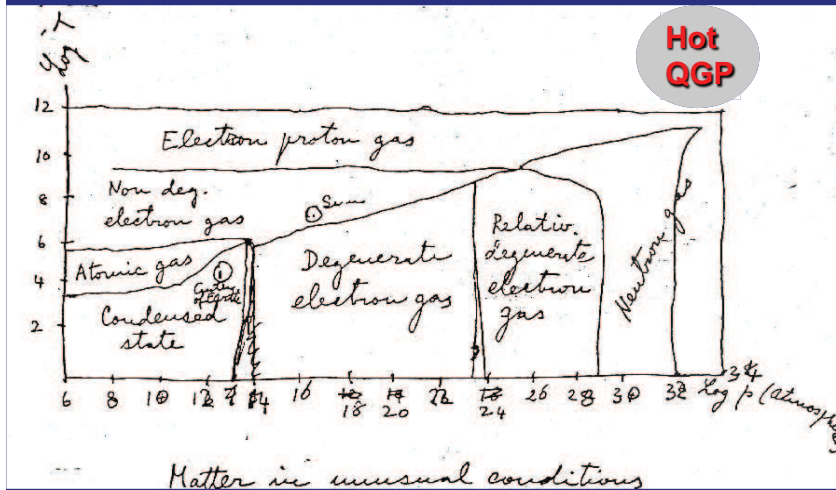 Log T
Hot
QGP
12
Electron proton gas
10
Non deg.
electron gas
8
Sun
6
Atomic gas
4
Center
of Earth
2
Condensed
state
Degenerate
electron gas
Relativ.
degenerate
electron
gas
Neutron gas
6 8 10 12 14 16 18 20 22 24 26 28 30 32 34
Log p (atmospheres)
Matter in unusual conditions